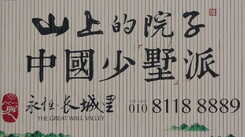 山上的院子
中國少墅派
永恒·长城里
THE GREAT WALL VALLEY
010 8118 8889